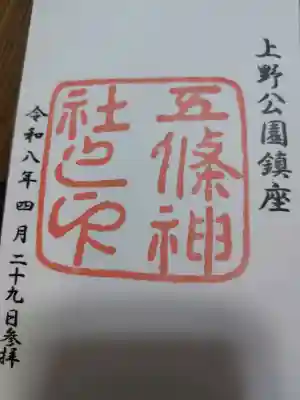 上野公園鎮座
五條神
社之印
令和八年四月二十九日参拝